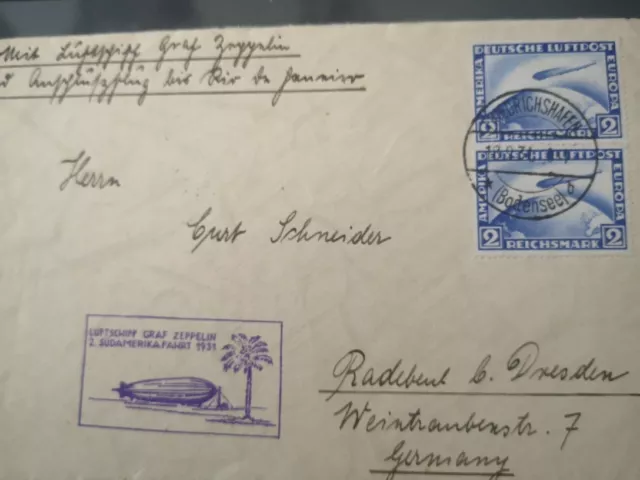 Mit Luftschiff Graf Zeppelin
d Anschlußflug bis Rio de Janeiro
DEUTSCHE LUFTPOST
AMERIKA
EUROPA
2 REICHSMARK 2
DEUTSCHE LUFTPOST
AMERIKA
EUROPA
2 REICHSMARK 2
FRIEDRICHSHAFEN
(Bodensee) b
Herrn
Curt Schneider
LUFTSCHIFF GRAF ZEPPELIN
2. SÜDAMERIKAFAHRT 1931
Radebeul b. Dresden
Weintraubenstr. 7
Germany